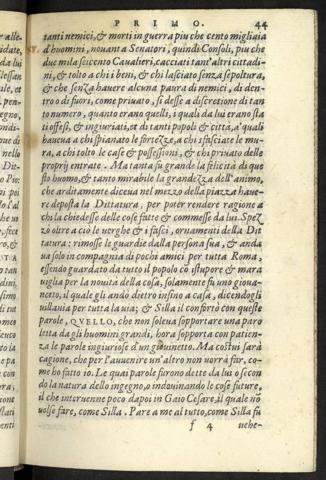 PRIMO. 44
tanti nemici, & morti in guerra piu che cento migliaia
d'huomini, nouant a Senatori, quindi Consoli, piu che
due mila seicento Caualieri, cacciati tant'altri cittadi-
ni, & tolto a chi i beni, & chi lasciato senza sepoltura,
& che senza hauere alcuna paura di nemici, di den-
tro o di fuori, come priuato, si desse a discretione di tan
to numero, quanto erano quelli, i quali da lui eran sta
ti offesi, & ingiuriati, et di tanti popoli & citta, a' quali
haueua a chi spianato le fortezze, a chi sfasciate le mu-
ra, a chi tolto le case & possessioni, & chi priuato delle
proprij entrate. Ma tanta fu grande la felicita di que
sto huomo, & tanto mirabile la grandezza dell'animo,
che arditamente diceua nel mezzo della piazza haue-
re deposta la Dittatura, per poter rendere ragione a
chi la chiedesse delle cose fatte & commesse da lui. Spez
zò oltre a ciò le uerghe & i fasci, ornamenti della Dit
tatura: rimosse le guardie dalla persona sua, & anda
ua solo in compagnia di pochi amici per tutta Roma,
essendo guardato da tutto il popolo cō istupore & mara
uiglia per la nouita della cosa, solamente fu uno giova-
netto, il quale gli andò dietro insino a casa, dicendogli
uillania per tutta la uia; & Silla il confortò con queste
parole, QVELLO, che non soleua sopportare una pa-
roletta da gli huomini grandi, hora sopporta con patien-
za le parole ingiuriose d'un giouinetto. Ma costui sarà
cagione, che per l'auuenire un'altro non uorrà far, co-
me ho fatto io. Le quai parole furono dette da lui o secon
do la natura dello ingegno, o indouinando le cose future,
il che interuenne poco dapoi in Gaio Cesare, il quale nō
uolse fare, come Silla. Pare a me al tutto, come Silla fu
f 4 uehe-